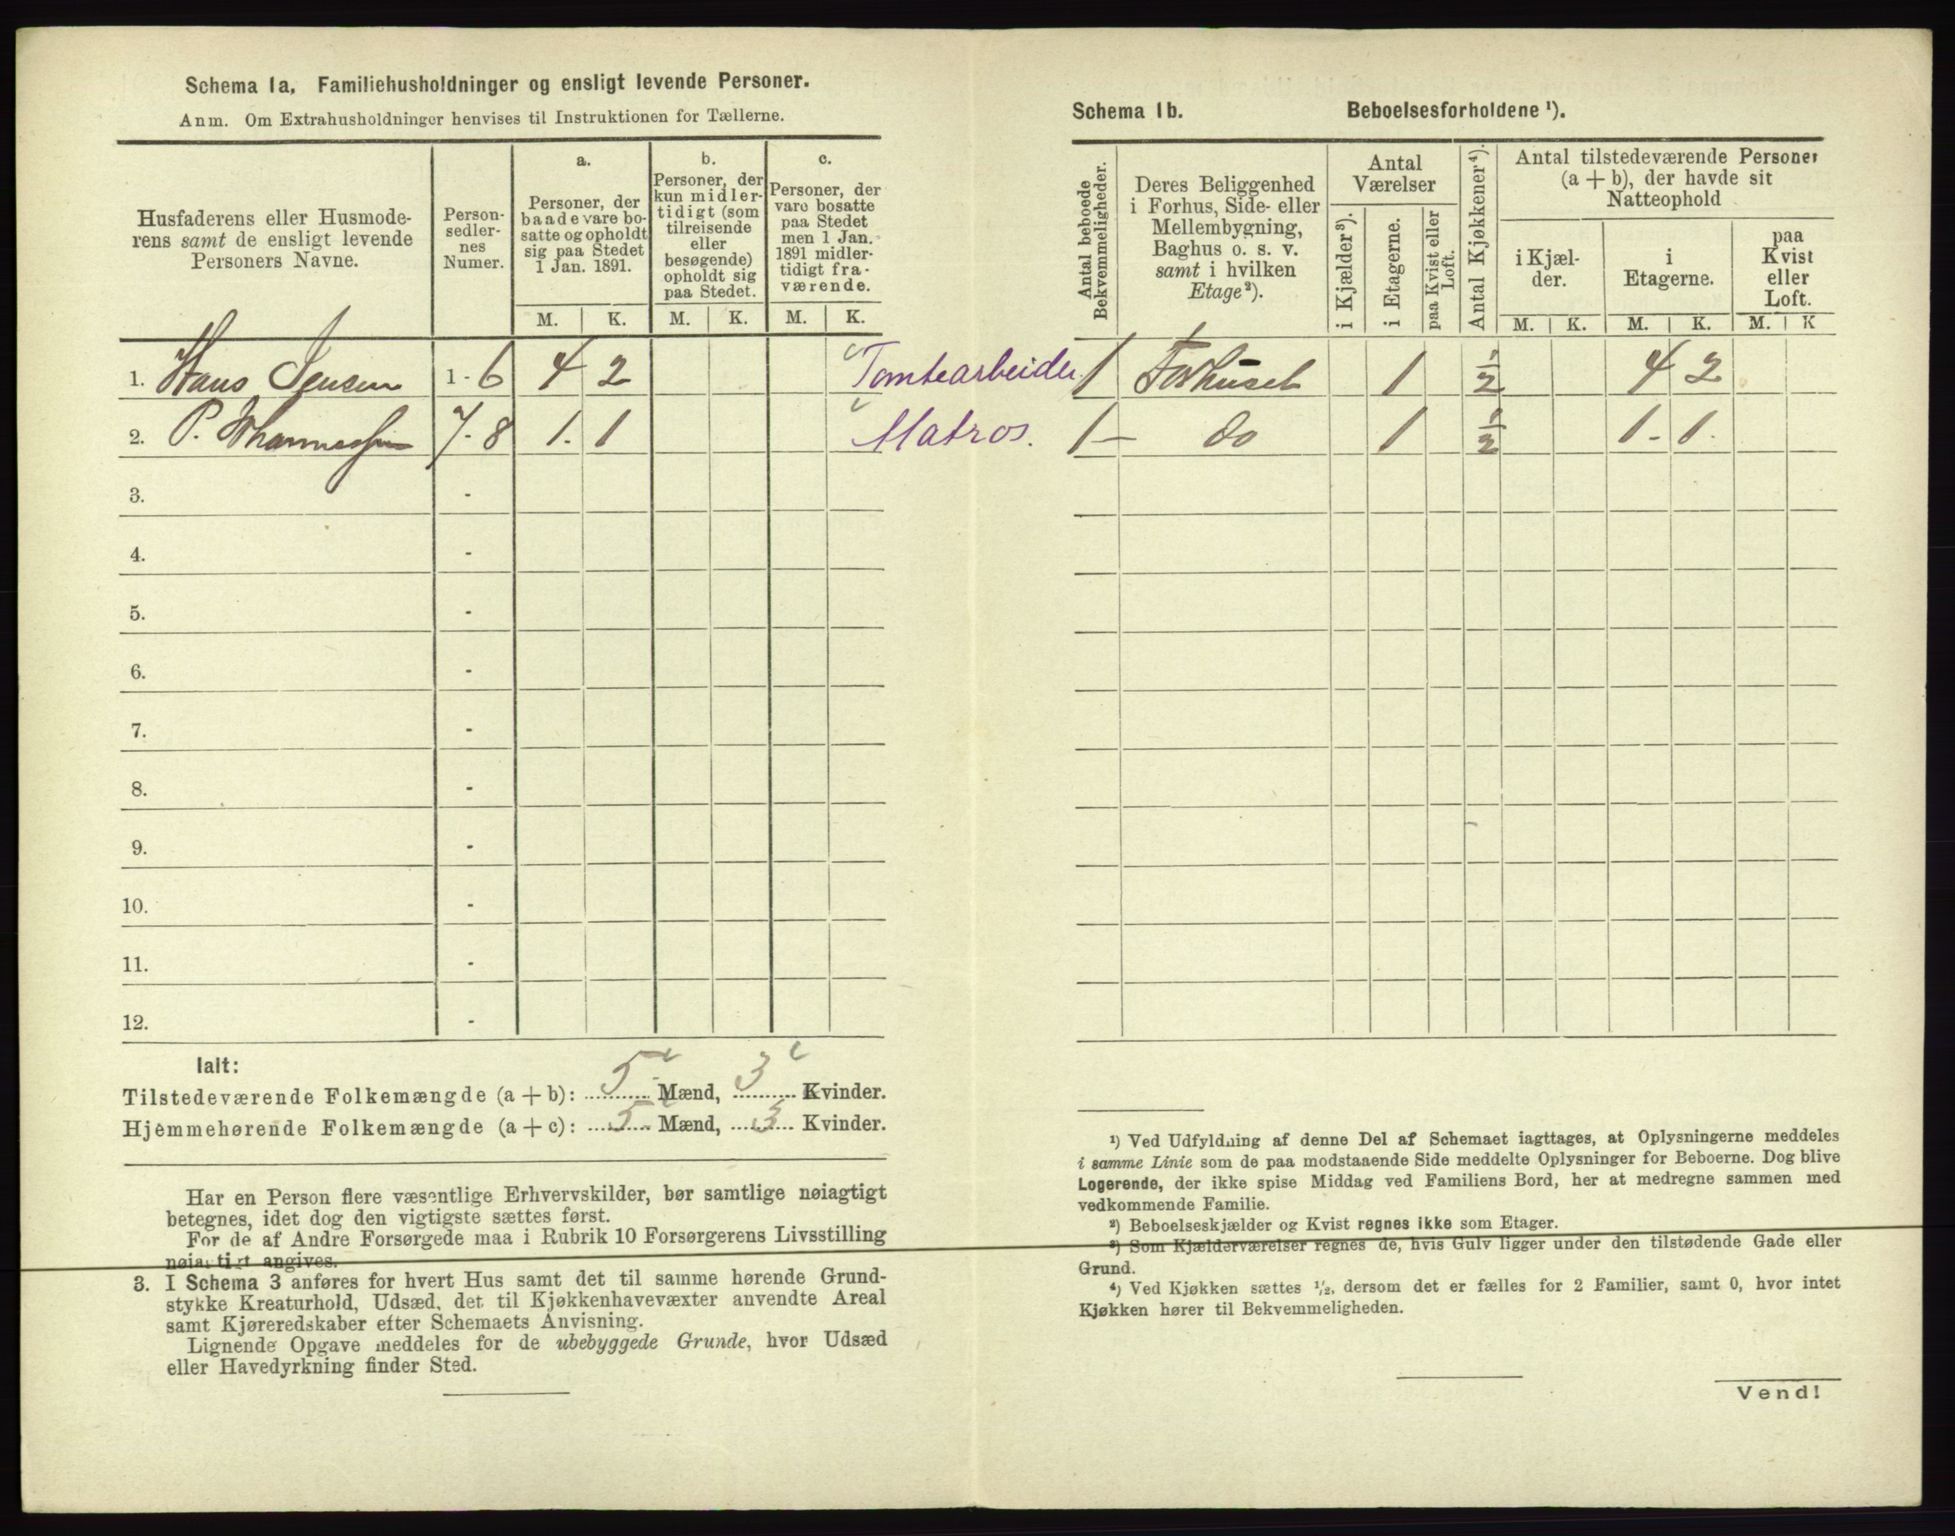 Schema 1a. Familiehusholdninger og ensligt levende Personer.
Anm. Om Extrahusholdninger henvises til Instruktionen for Tællerne.
Husfaderens eller Husmode-
rens samt de ensligt levende
Personers Navne.
Person-
sedler-
nes
Numer.
a.
Personer, der
baade vare bo-
satte og opholdt
sig paa Stedet
1 Jan. 1891.
b.
Personer, der
kun midler-
tidigt (som
tilreisende
eller
besøgende)
opholdt sig
paa Stedet.
c.
Personer, der
vare bosatte
paa Stedet
men 1 Jan.
1891 midler-
tidigt fra-
værende.
M. K. M. K. M. K.
1. Hans Jensen 1 - 6 4 2 Tomtearbeider
2. P. Johannessen 7 - 8 1. 1 Matros.
3. -
4. -
5. -
6. -
7. -
8. -
9. -
10. -
11. -
12. -
Ialt:
Tilstedeværende Folkemængde (a + b): 5 Mænd, 3 Kvinder.
Hjemmehørende Folkemængde (a + c): 5 Mænd, 3 Kvinder.
Har en Person flere væsentlige Erhvervskilder, bør samtlige nøiagtigt
betegnes, idet dog den vigtigste sættes først.
For de af Andre Forsørgede maa i Rubrik 10 Forsørgerens Livsstilling
nøiagtigt angives.
3. I Schema 3 anføres for hvert Hus samt det til samme hørende Grund-
stykke Kreaturhold, Udsæd, det til Kjøkkenhavevæxter anvendte Areal
samt Kjøreredskaber efter Schemaets Anvisning.
Lignende Opgave meddeles for de ubebyggede Grunde, hvor Udsæd
eller Havedyrkning finder Sted.
Schema 1b. Beboelsesforholdene ¹).
Antal beboede
Bekvemmeligheder.
Deres Beliggenhed
i Forhus, Side- eller
Mellembygning,
Baghus o. s. v.
samt i hvilken
Etage²).
Antal
Værelser
i Kjælder³).
i Etagerne.
paa Kvist eller
Loft.
Antal Kjøkkener⁴).
Antal tilstedeværende Personer
(a + b), der havde sit
Natteophold
i Kjæl-
der.
i
Etagerne.
paa
Kvist
eller
Loft.
M. K. M. K. M. K
1 Forhuset 1 ½ 4 2
1 — do 1 ½ 1 - 1.
¹) Ved Udfyldning af denne Del af Schemaet iagttages, at Oplysningerne meddeles
i samme Linie som de paa modstaaende Side meddelte Oplysninger for Beboerne. Dog blive
Logerende, der ikke spise Middag ved Familiens Bord, her at medregne sammen med
vedkommende Familie.
²) Beboelseskjælder og Kvist regnes ikke som Etager.
³) Som Kjælderværelser regnes de, hvis Gulv ligger under den tilstødende Gade eller
Grund.
⁴) Ved Kjøkken sættes ½, dersom det er fælles for 2 Familier, samt 0, hvor intet
Kjøkken hører til Bekvemmeligheden.
Vend!